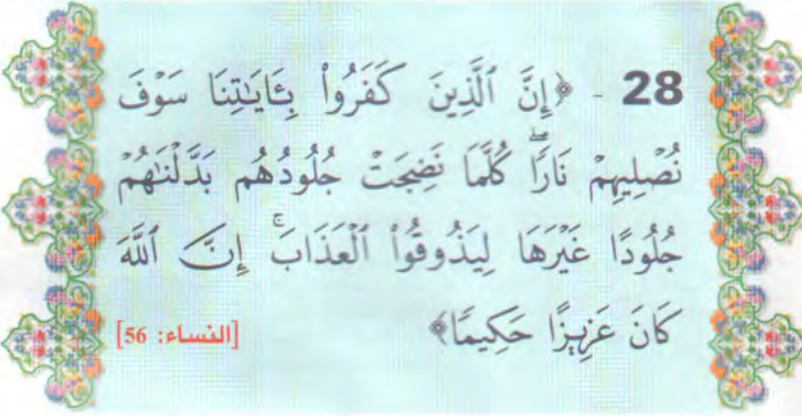 28 - ﴿إِنَّ ٱلَّذِينَ كَفَرُوا۟ بِـَٔايَـٰتِنَا سَوْفَ
نُصْلِيهِمْ نَارًۭا ۖ كُلَّمَا نَضِجَتْ جُلُودُهُم بَدَّلْنَـٰهُمْ
جُلُودًا غَيْرَهَا لِيَذُوقُوا۟ ٱلْعَذَابَ ۗ إِنَّ ٱللَّهَ
كَانَ عَزِيزًا حَكِيمًۭا﴾ [النساء: 56]